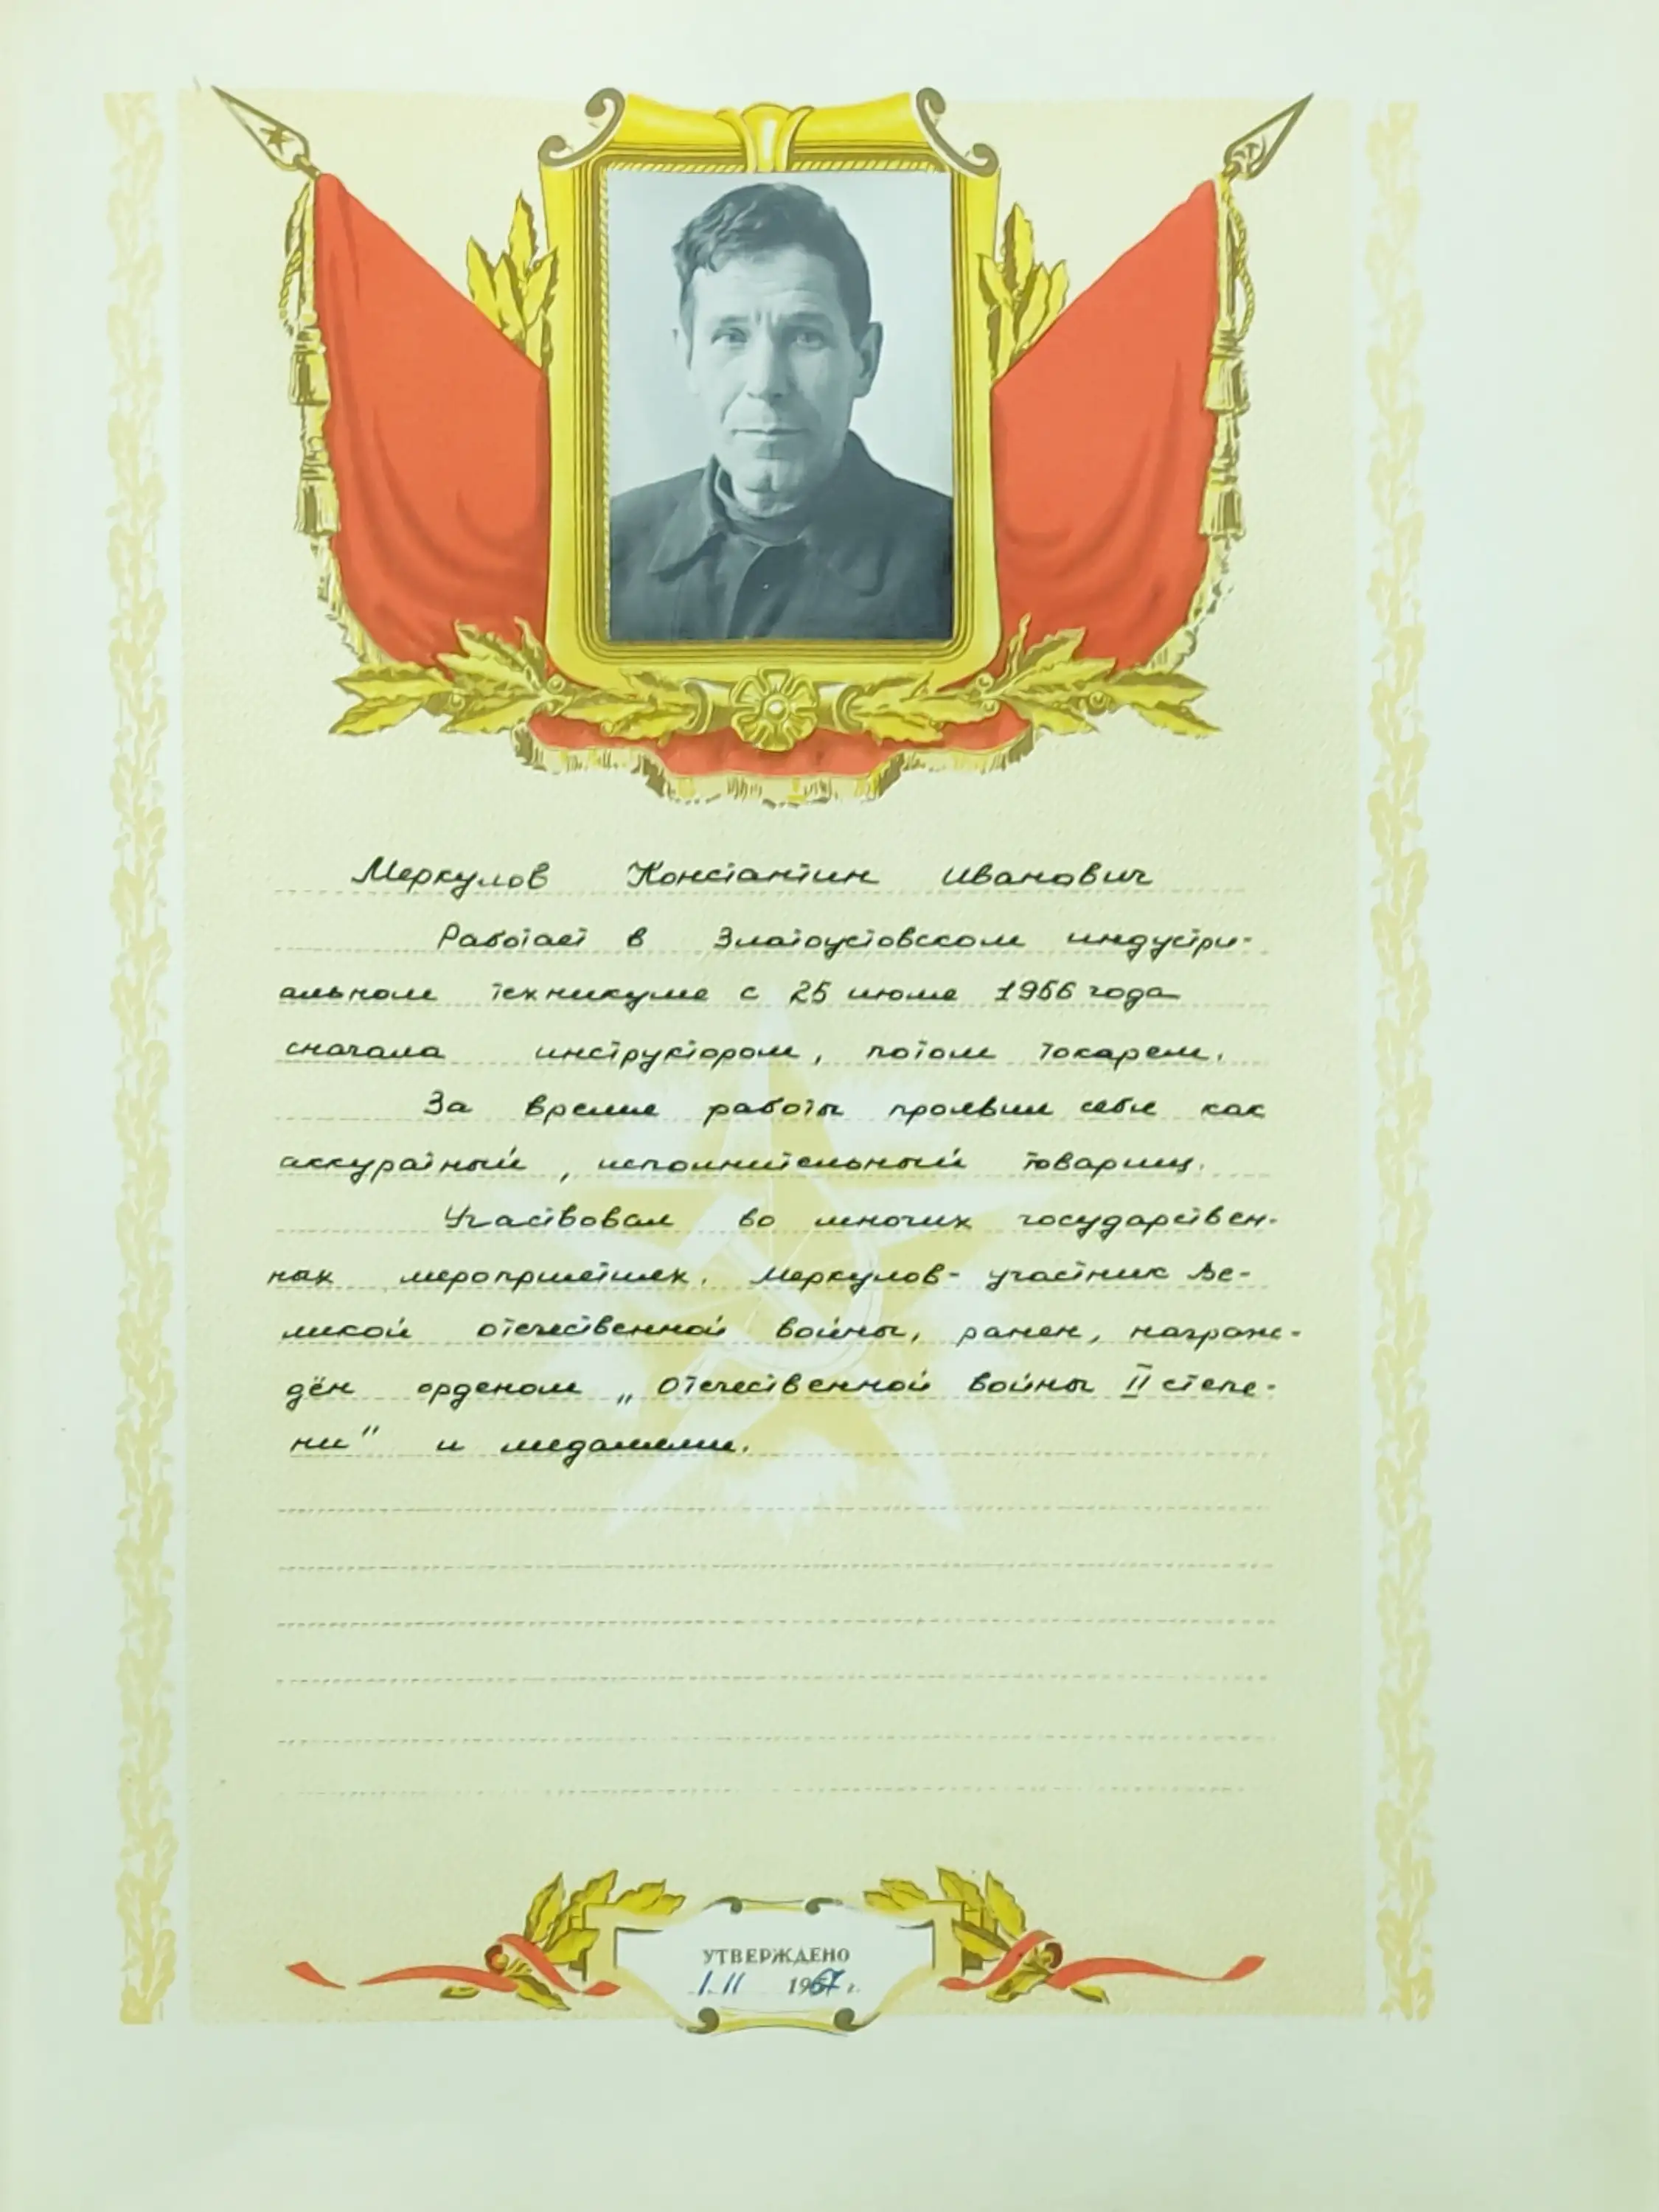 Меркулов Константин Иванович
Работает в Златоустовском индустри-
альном техникуме с 25 июля 1956 года
сначала инструктором, потом токарем.
За время работы проявил себя как
аккуратный, исполнительный товарищ.
Участвовал во многих государствен-
ных мероприятиях. Меркулов - участник Ве-
ликой отечественной войны, ранен, награж-
дён орденом „Отечественной войны II степе-
ни" и медалями.
УТВЕРЖДЕНО
1.II 1967 г.